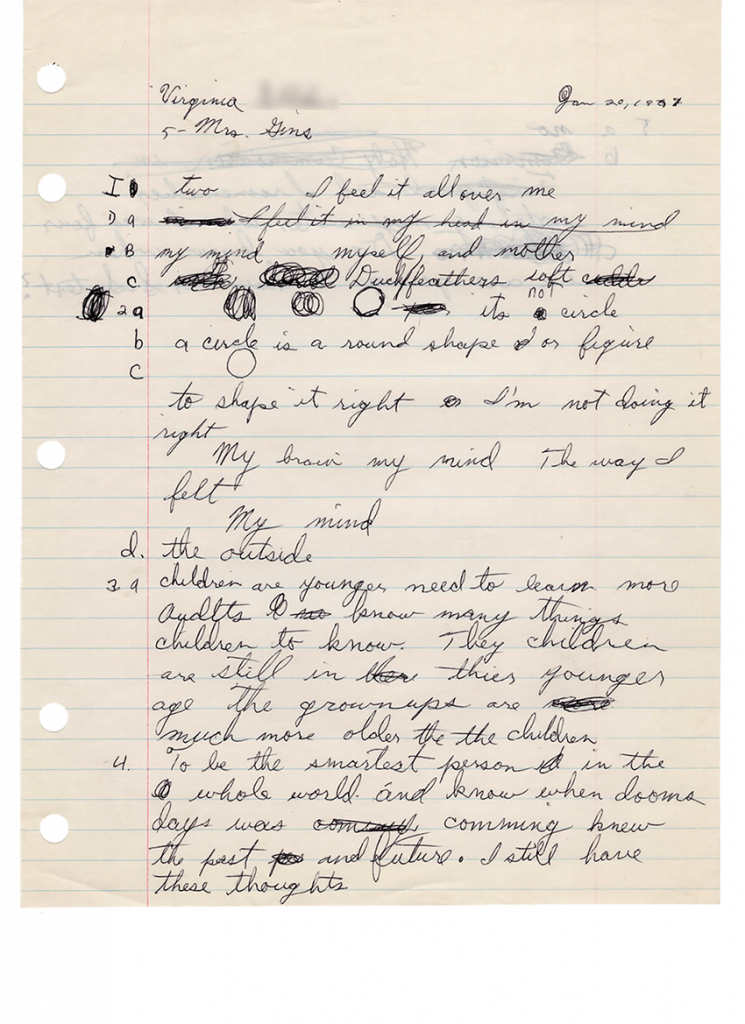 Virginia
Jan 20, 19
5- Mrs. Gins
I two I feel it all over me
1) a I feel it in my head in my mind
B my mind myself, and mother
c Duckfeathers soft
2a its not circle
b a circle is a round shape or figure
C
to shape it right I'm not doing it
right
My brain my mind The way I
felt
My mind
d. the outside
3. a children are younger need to learn more
Audlts know many things
children to know. They children
are still in thier younger
age the grownups are
much more older the the children
4. To be the smartest person in the
whole world and know when dooms
days was comming knew
the past and future. I still have
these thoughts